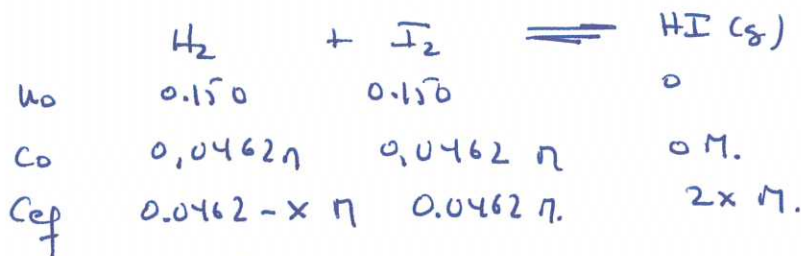 H₂ + I₂ ⇌ HI (g)
n₀ 0.150 0.150 0
C₀ 0,0462 M 0,0462 M 0 M.
Cef 0.0462 - x M 0.0462 M. 2x M.